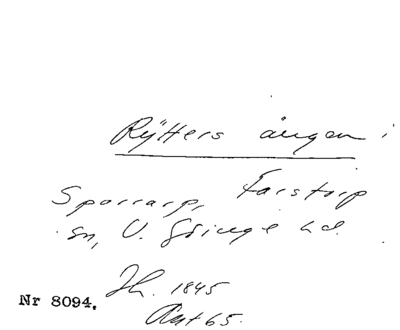 Rytters ängen i
Sporrarp, Farstorp
sn, V. Göinge hd.
Jh. 1845
Nr 8094.
Akt 65.